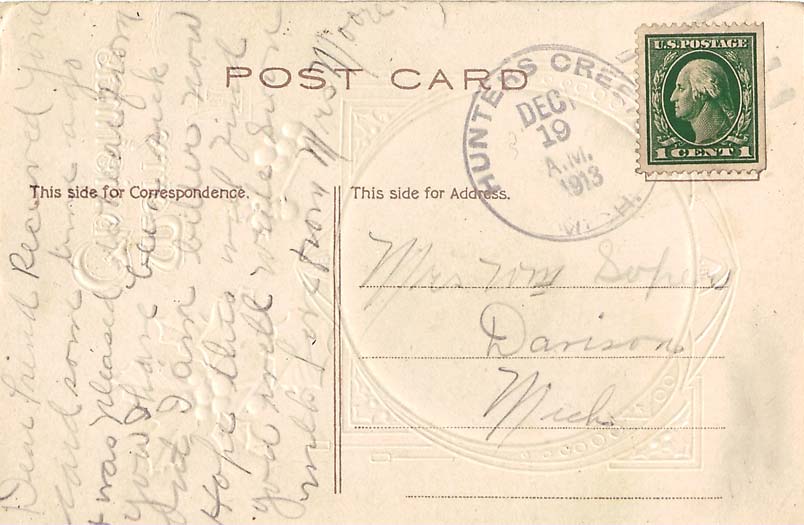 POST CARD
HUNTERS CREEK
DEC
19
A.M.
1913
MICH.
U.S. POSTAGE
1 CENT 1
This side for Correspondence.
This side for Address.
Dear Friend Received your
card some time ago
was pleased to hear from
you I have been sick
but I am better now
Hope this will find
you will write soon
with Love from Mrs Moore
Mrs Wm Soper
Davison
Mich